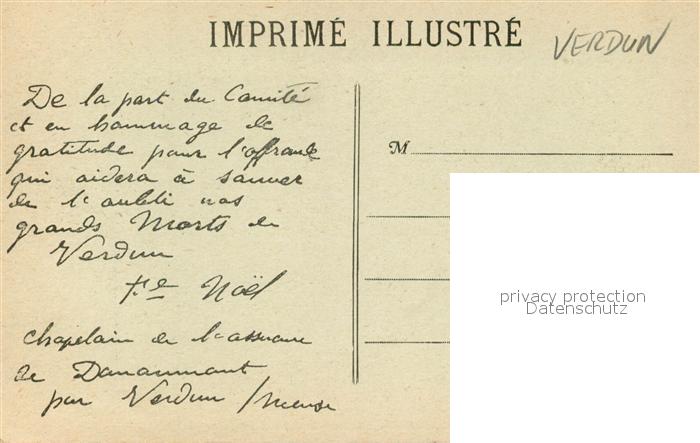 IMPRIMÉ ILLUSTRÉ
VERDUN
De la part du Comité
et en hommage de
gratitude pour l'offrande
qui aidera à sauver
de l'oubli nos
grands Morts de
Verdun
Noël
chapelain de
de Douaumont
par Verdun / Meuse
M
privacy protection
Datenschutz